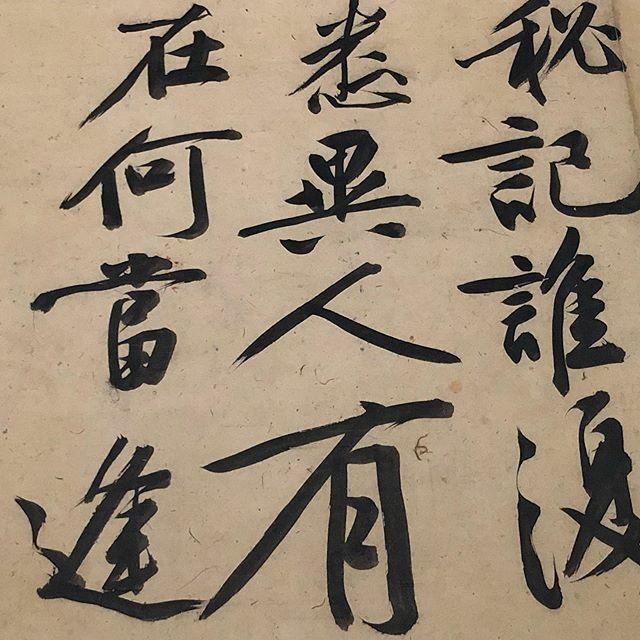 秘記誰復
悉異人有
在何當逢